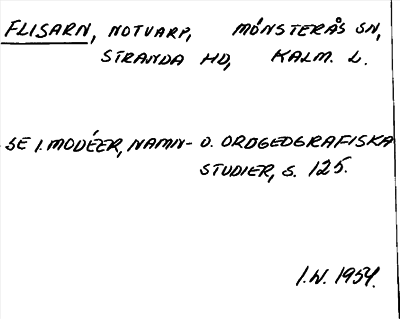 FLISARN, NOTVARP, MÖNSTERÅS SN,
STRANDA HD, KALM. L.
SE I. MODÉER, NAMN- O. ORDGEOGRAFISKA
STUDIER, S. 125.
I.W. 1954.